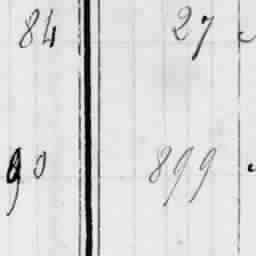 84 27
90 899